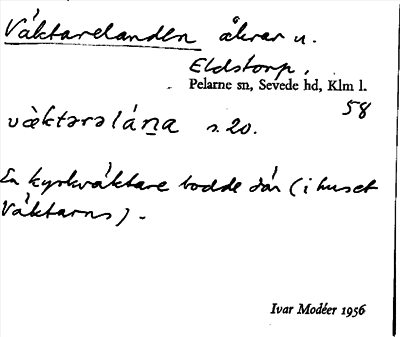 Väktarelanden åkrar u.
Eldstorp,
Pelarne sn, Sevede hd, Klm l.
58
væ̀ktərəlána s. 20.
En kyrkväktare bodde där (i huset
Väktarns).
Ivar Modéer 1956